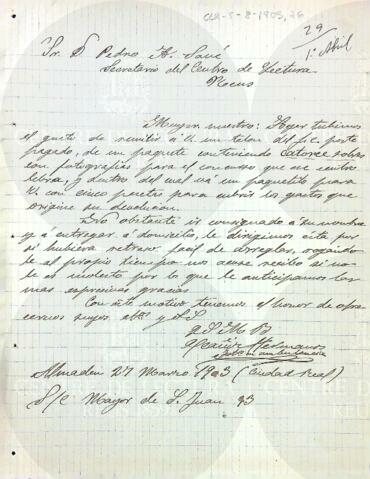 CLR-5-8-1903,26
29
1º Abril
Sr. D Pedro A. Savé
Secretario del Centro de Lectura
Reus
Muy sr. nuestro: Ayer tubimos
el gusto de remitir a V. un talon del f.c. porte
pagado, de un paquete conteniendo Catorce sobres
con fotografias para el concurso que ese centro
lebra, y dentro del cual vá un paquetito para
V. con cinco pesetas para cubrir los gastos que
origine su devolucion.
obstante ir consignado á su nombre
y á entregar á domicilio, le dirigimos esta por
si hubiera retraso facil de arreglar, rogando
le al propio tiempo nos acuse recibo si no
le es molesto por lo que le anticipamos las
mas expresivas gracias
Con este motivo tenemos el honor de ofre
cernos suyos y S.S
q. S. M. B
Hermanos
Almaden 27 Marzo 1903 (Ciudad Real)
S/c Mayor de S. Juan 93